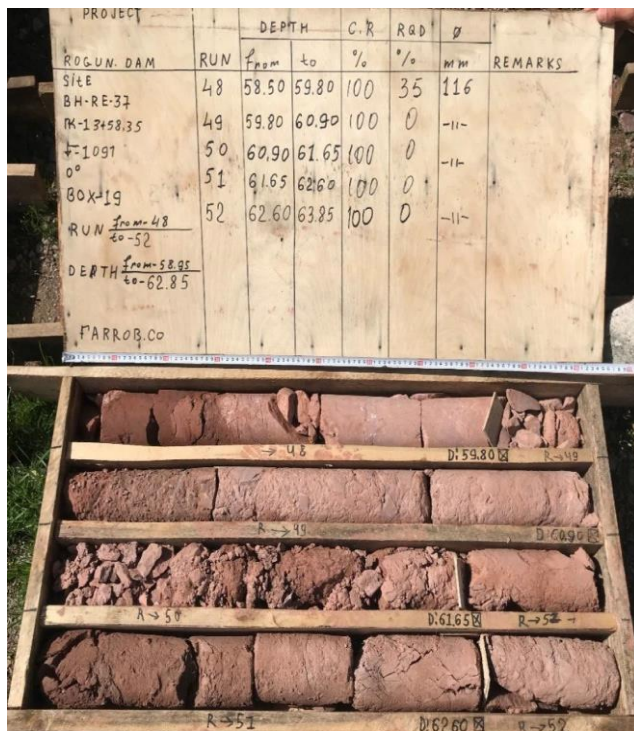 PROJECT
DEPTH C.R RQD Ø
ROGUN. DAM RUN from to % % mm REMARKS
SitE 48 58.50 59.80 100 35 116
BH-RE-37
ПК-13+58.35 49 59.80 60.90 100 0 -11-
-1091 50 60.90 61.65 100 0 -11-
0° 51 61.65 62.60 100 0
BOX-19
52 62.60 63.85 100 0 -11-
RUN from-48
to-52
DEPTH from-58.95
to-62.85
FARROB.CO
→48 D:59.80 R→49
R→49 D:60.90
R→50 D:61.65
R→51 D:62.60 R→52